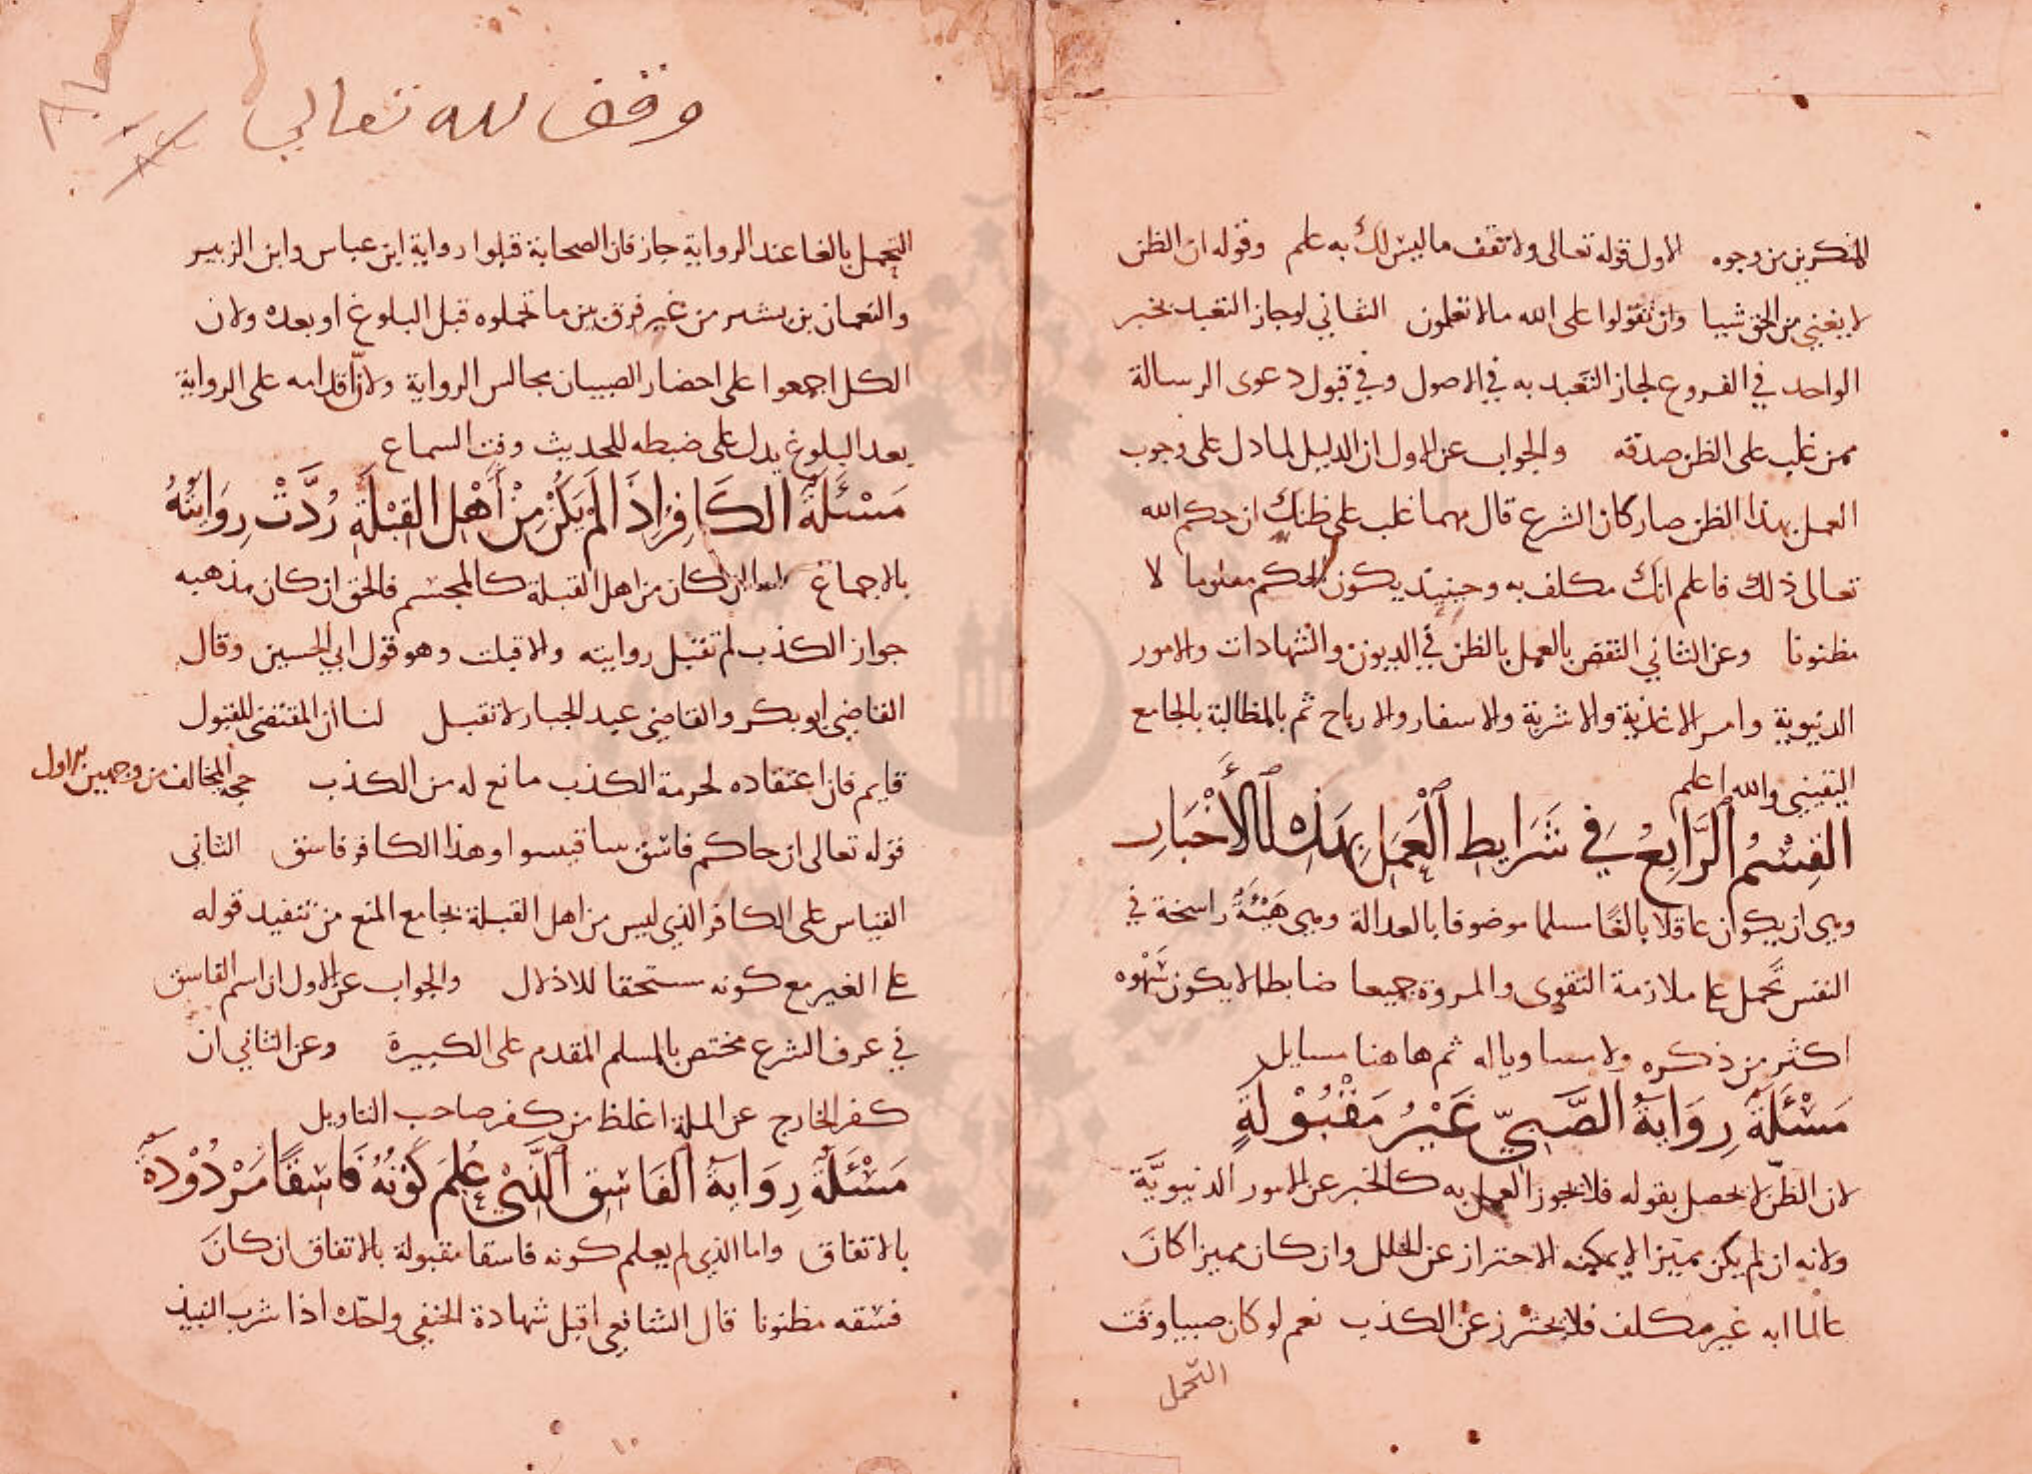 للمنكرين من وجوه الاول قوله تعالى ولا تقف ما ليس لك به علم وقوله ان الظن
لا يغني من الحق شيا وان تقولوا على الله مالا تعلمون الثاني لو جاز التعبد بخبر
الواحد في الفروع لجاز التعبد به في الاصول وفي قبول دعوى الرسالة
ممن غلب على الظن صدقه والجواب عن الاول ان الدليل لما دل على وجوب
العمل بهذا الظن صار كان الشرع قال مهما غلب على ظنك ان حكم الله
تعالى ذلك فاعلم انك مكلف به وحينيذ يكون الحكم معلوما لا
مظنونا وعن الثاني النقض بالعمل بالظن في الديون والشهادات والامور
الدنيوية وامر الاغذية والاشربة والاسفار والارباح ثم بالمطالبة بالجامع
اليقيني والله اعلم
القِسْمُ الرَّابِعُ في شَرَايط العَمَلِ بِهَذِه الأَخْبَارِ
وهي ان يكون عاقلا بالغًا مسلما موصوفا بالعدالة وهي هَيْئَةٌ راسخة في
النفس تَحمل على ملازمة التقوى والمروة جميعا ضابطا لا يكون سَهْوه
اكثر من ذكره ولا مساويا له ثم هاهنا مسايل
مَسْئَلَة رِوَايَةُ الصَّبيّ غَيْرُ مَقْبُوْلَةٍ
لان الظنّ لا يحصل بقوله فلا يجوز العمل به كالخبر عن الامور الدنيويَّة
ولانه ان لم يكن مميّزا لا يمكنه الاحتراز عن الخلل وان كان مميزا كان
عالما انه غير مكلف فلا يحترز عن الكذب نعم لو كان صبيا وقت
التحمل
وقف لله تعالى
التحمل بالغا عند الرواية جاز فان الصحابة قبلوا رواية ابن عباس وابن الزبير
والنعمان بن بشير من غير فرق بين ما تحملوه قبل البلوغ او بعده ولان
الكل اجمعوا على احضار الصبيان مجالس الرواية ولانّ اقدامه على الرواية
بعد البلوغ يدل على ضبطه للحديث وقت السماع
مَسْئَلَة الكَافِرُ إِذَا لَمْ يَكُنْ مِنْ أَهْلِ القِبْلَةِ رُدَّتْ رِوَايَتُهُ
بالاجماع اما ان كان من اهل القبلة كالمجسّم فالحق ان كان مذهبه
جواز الكذب لم تقبل روايته والا قبلت وهو قول ابي الحسين وقال
القاضي ابو بكر والقاضي عبد الجبار لا تقبل لنا ان المقتضى للقبول
قايم فان اعتقاده لحرمة الكذب مانع له من الكذب حجة المخالف من وجهين الاول
قوله تعالى ان جاكم فاسق بنبا فتبينوا وهذا الكافر فاسق الثاني
القياس على الكافر الذي ليس من اهل القبلة بجامع المنع من تنفيذ قوله
على الغير مع كونه مستحقا للاذلال والجواب عن الاول ان اسم الفاسق
في عرف الشرع مختص بالمسلم المقدم على الكبيرة وعن الثاني ان
كفر الخارج عن الملة اغلظ من كفر صاحب التاويل
مَسْئَلَة رِوَايَةُ الفَاسِق الَّذِيْ عُلِمَ كَوْنُهُ فَاسِقًا مَرْدُوْدَةٌ
بالاتفاق واما الذي لم يعلم كونه فاسقا مقبولة بالاتفاق ان كان
فسقه مظنونا قال الشافعي اقبل شهادة الحنفي واحدّه اذا شرب النبيذ